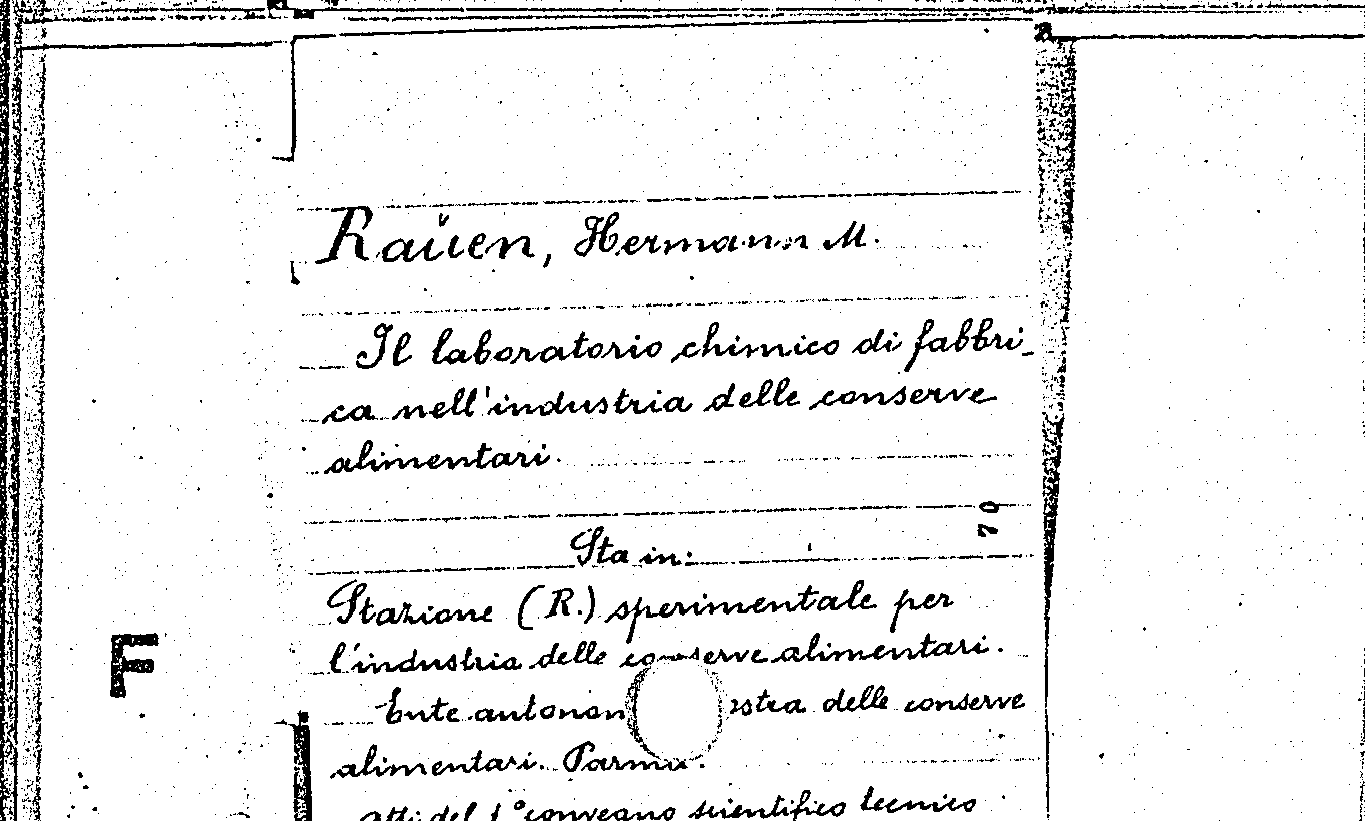 Raŭen, Hermann M.
Il laboratorio chimico di fabbri-
ca nell'industria delle conserve
alimentari.
70
Sta in:
Stazione (R.) sperimentale per
l'industria delle conserve alimentari.
F
Ente delle conserve
alimentari. Parma.
Atti del 1° convegno scientifico tecnico